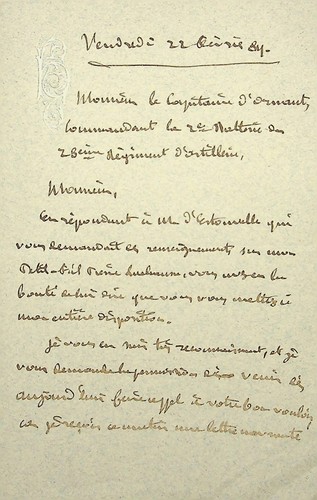 Vendredi 22 février 84.
Monsieur le Capitaine d'
Commandant la 2e Batterie du
28ème Régiment d'artillerie,
Monsieur,
En répondant à M. d'Estournelle qui
vous demandait des renseignements sur mon
Petit-fils Pierre vous avez eu la
bonté de lui dire que vous vous mettiez à
mon entière disposition.
Je vous en suis très reconnaissant, et je
vous demande la permission de venir dès
aujourd'hui faire appel à votre bon vouloir
car je reçois ce matin une lettre